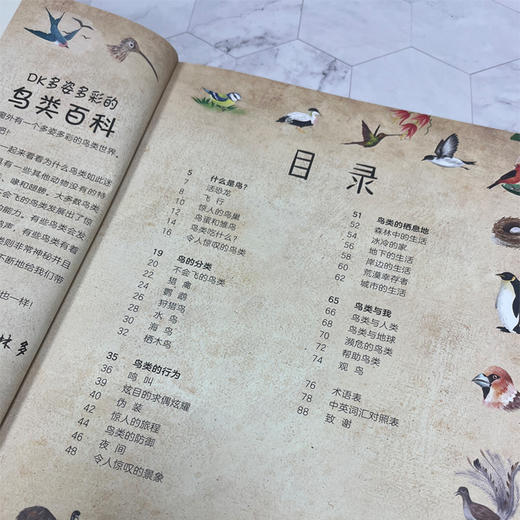 DK多姿多彩的
鸟类百科
外有一个多姿多彩的鸟类世界。
吧!
一起来看看为什么鸟类如此迷
有一些其他动物没有的特
喙和翅膀。大多数鸟类
会飞的鸟类发展出了惊
能力。有些鸟类会发
声，有些鸟类有着
则非常神秘并且
不断地给我们带
也一样!
林 多
目 录
5 什么是鸟?
7 活恐龙
8 飞 行
10 惊人的鸟巢
12 鸟蛋和雏鸟
14 鸟类吃什么?
16 令人惊叹的鸟类
19 鸟的分类
20 不会飞的鸟类
22 猛 禽
24 鹦 鹉
26 狩猎鸟
28 水 鸟
30 海 鸟
32 栖木鸟
35 鸟类的行为
36 鸣 叫
39 炫目的求偶炫耀
40 伪 装
42 惊人的旅程
44 鸟类的防御
46 夜 间
48 令人惊叹的景象
51 鸟类的栖息地
52 森林中的生活
54 冰冷的家
56 地下的生活
58 岸边的生活
60 荒漠幸存者
62 城市的生活
65 鸟类与我
66 鸟类与人类
68 鸟类与地球
70 濒危的鸟类
72 帮助鸟类
74 观 鸟
76 术语表
78 中英词汇对照表
88 致 谢